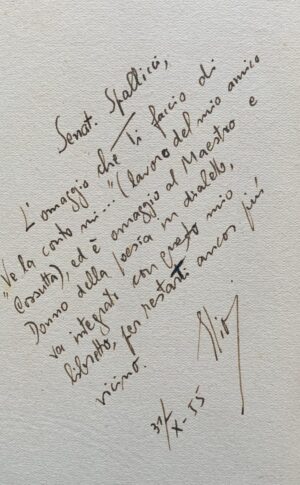 Senat. Spallicci,
L'omaggio che ti faccio di
"Ve la conto mi..." (lavoro del mio amico
Cossutta), ed è omaggio al Maestro e
Donno della poesia in dialetto,
va integrato con questo mio
libretto, per restarti ancor più
vicino.
31/X-55